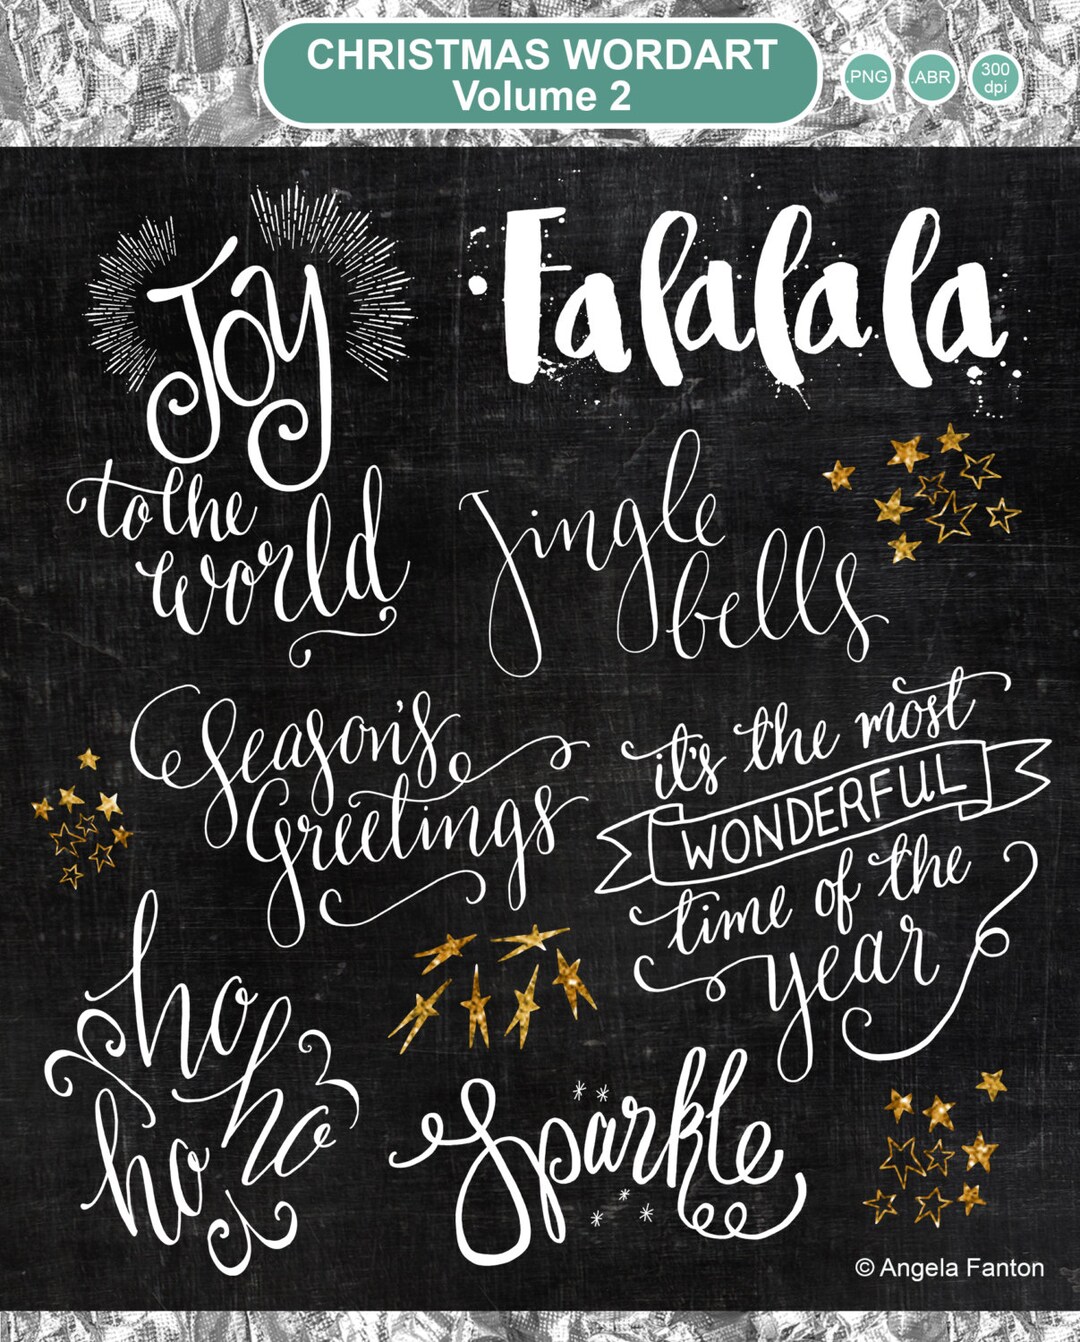 CHRISTMAS WORDART
Volume 2
.PNG
.ABR
300
dpi
Joy
to the
world
Falalala
Jingle
bells
Season's
Greetings
it's the most
WONDERFUL
time of the
year
ho
ho
ho
Sparkle
© Angela Fanton